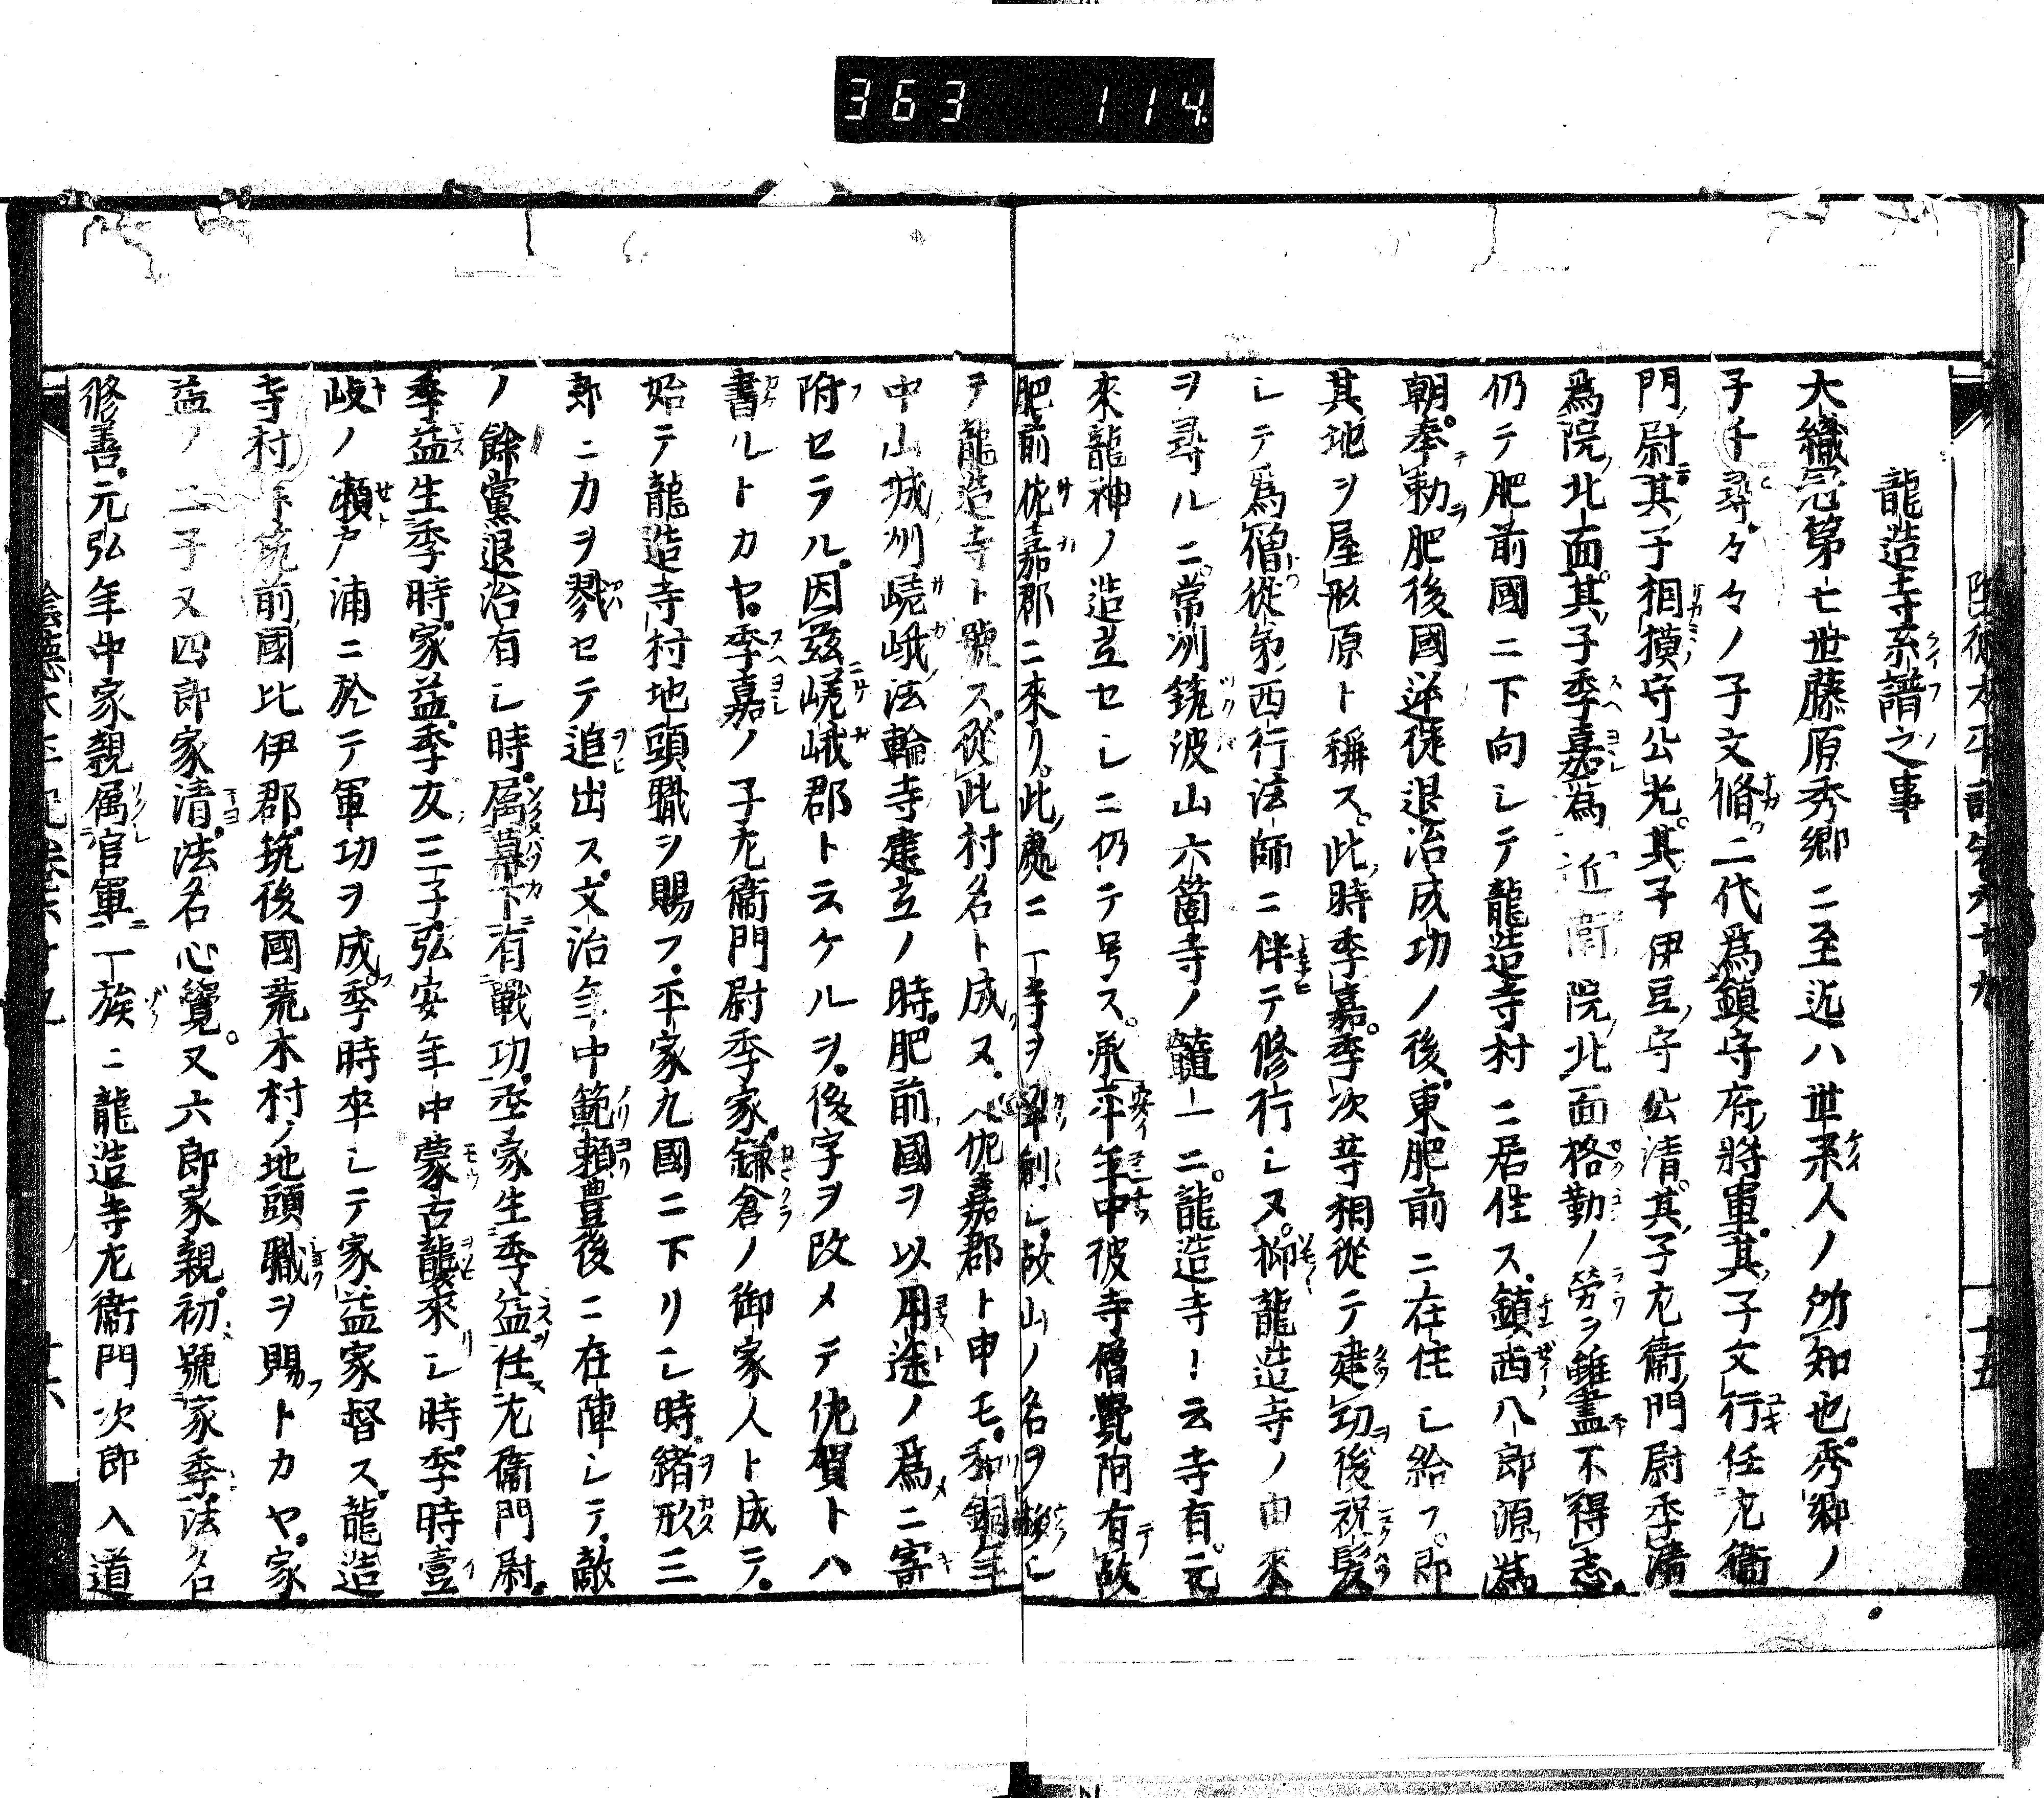 363 114
龍造寺系譜之事
大織冠第七世藤原秀郷ニ至迄ハ世系人ノ所知也。秀郷ノ
子千尋。々々ノ子文脩二代爲鎮守府將軍。其子文行任左衞
門尉。其子相摸守公光。其子伊豆守公清。其子左衞門尉季清
爲院北面。其子季嘉爲近衞院北面格勤ノ勞ヲ雖盡不得志。
仍テ肥前國ニ下向シテ龍造寺村ニ居住ス。鎮西八郎源爲
朝。奉勅肥後國逆徒退治成功ノ後。東肥前ニ在住シ給フ。即
其地ヲ屋形原ト稱ス。此時季嘉。季次等相從テ建功後祝髮
シテ爲僧從弟西行法師ニ伴テ修行シヌ。抑龍造寺ノ由來
ヲ尋ルニ。常州筑波山六箇寺ノ隨一ニ。龍造寺ト云寺有。元
來龍神ノ造立セシニ仍テ号ス。承平年中彼寺僧覺阿有故
肥前佐嘉郡ニ來リ。此處ニ一寺ヲ草創シ。故山ノ名ヲ移シ
ヲ龍造寺ト號ス。從此村名ト成ヌ。佐嘉郡ト申モ。和銅年
中山城州嵯峨法輪寺建立ノ時。肥前國ヲ以用途ノ爲ニ寄
附セラル。因茲嵯峨郡ト云ケルヲ。後字ヲ改メテ佐賀トハ
書ルトカヤ。季嘉ノ子左衞門尉季家。鎌倉ノ御家人ト成テ。
始テ龍造寺村地頭職ヲ賜フ。平家九國ニ下リシ時。緒形三
郎ニ力ヲ戮セテ追出ス。文治年中範頼豊後ニ在陣シテ。敵
ノ餘黨退治有シ時。属幕下有戰功。季家生季益任左衞門尉。
季益生季時。家益。季友三子。弘安年中蒙古襲來リシ時。季時壹
岐ノ瀬戸浦ニ於テ軍功ヲ成。季時卒シテ家益家督ス。龍造
寺村筑前國比伊郡。筑後國荒木村ノ地頭職ヲ賜フトカヤ。家
益ノ二子又四郎家清。法名心覺。又六郎家親。初號家季。法名
修善。元弘年中家親属官軍一族ニ龍造寺左衞門次郎入道
十五